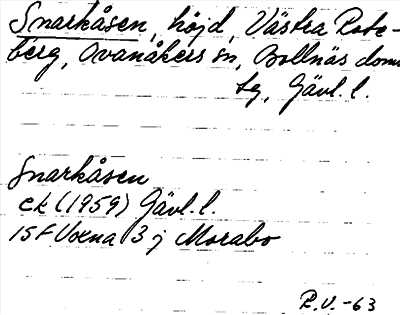 Snarkåsen, höjd, Västra Rote-
berg, Ovanåkers sn, Bollnäs doms
tg, Gävl. l.
Snarkåsen
ek (1959) Gävl. l.
15F Voxna 3 j Morabo
R.V.-63